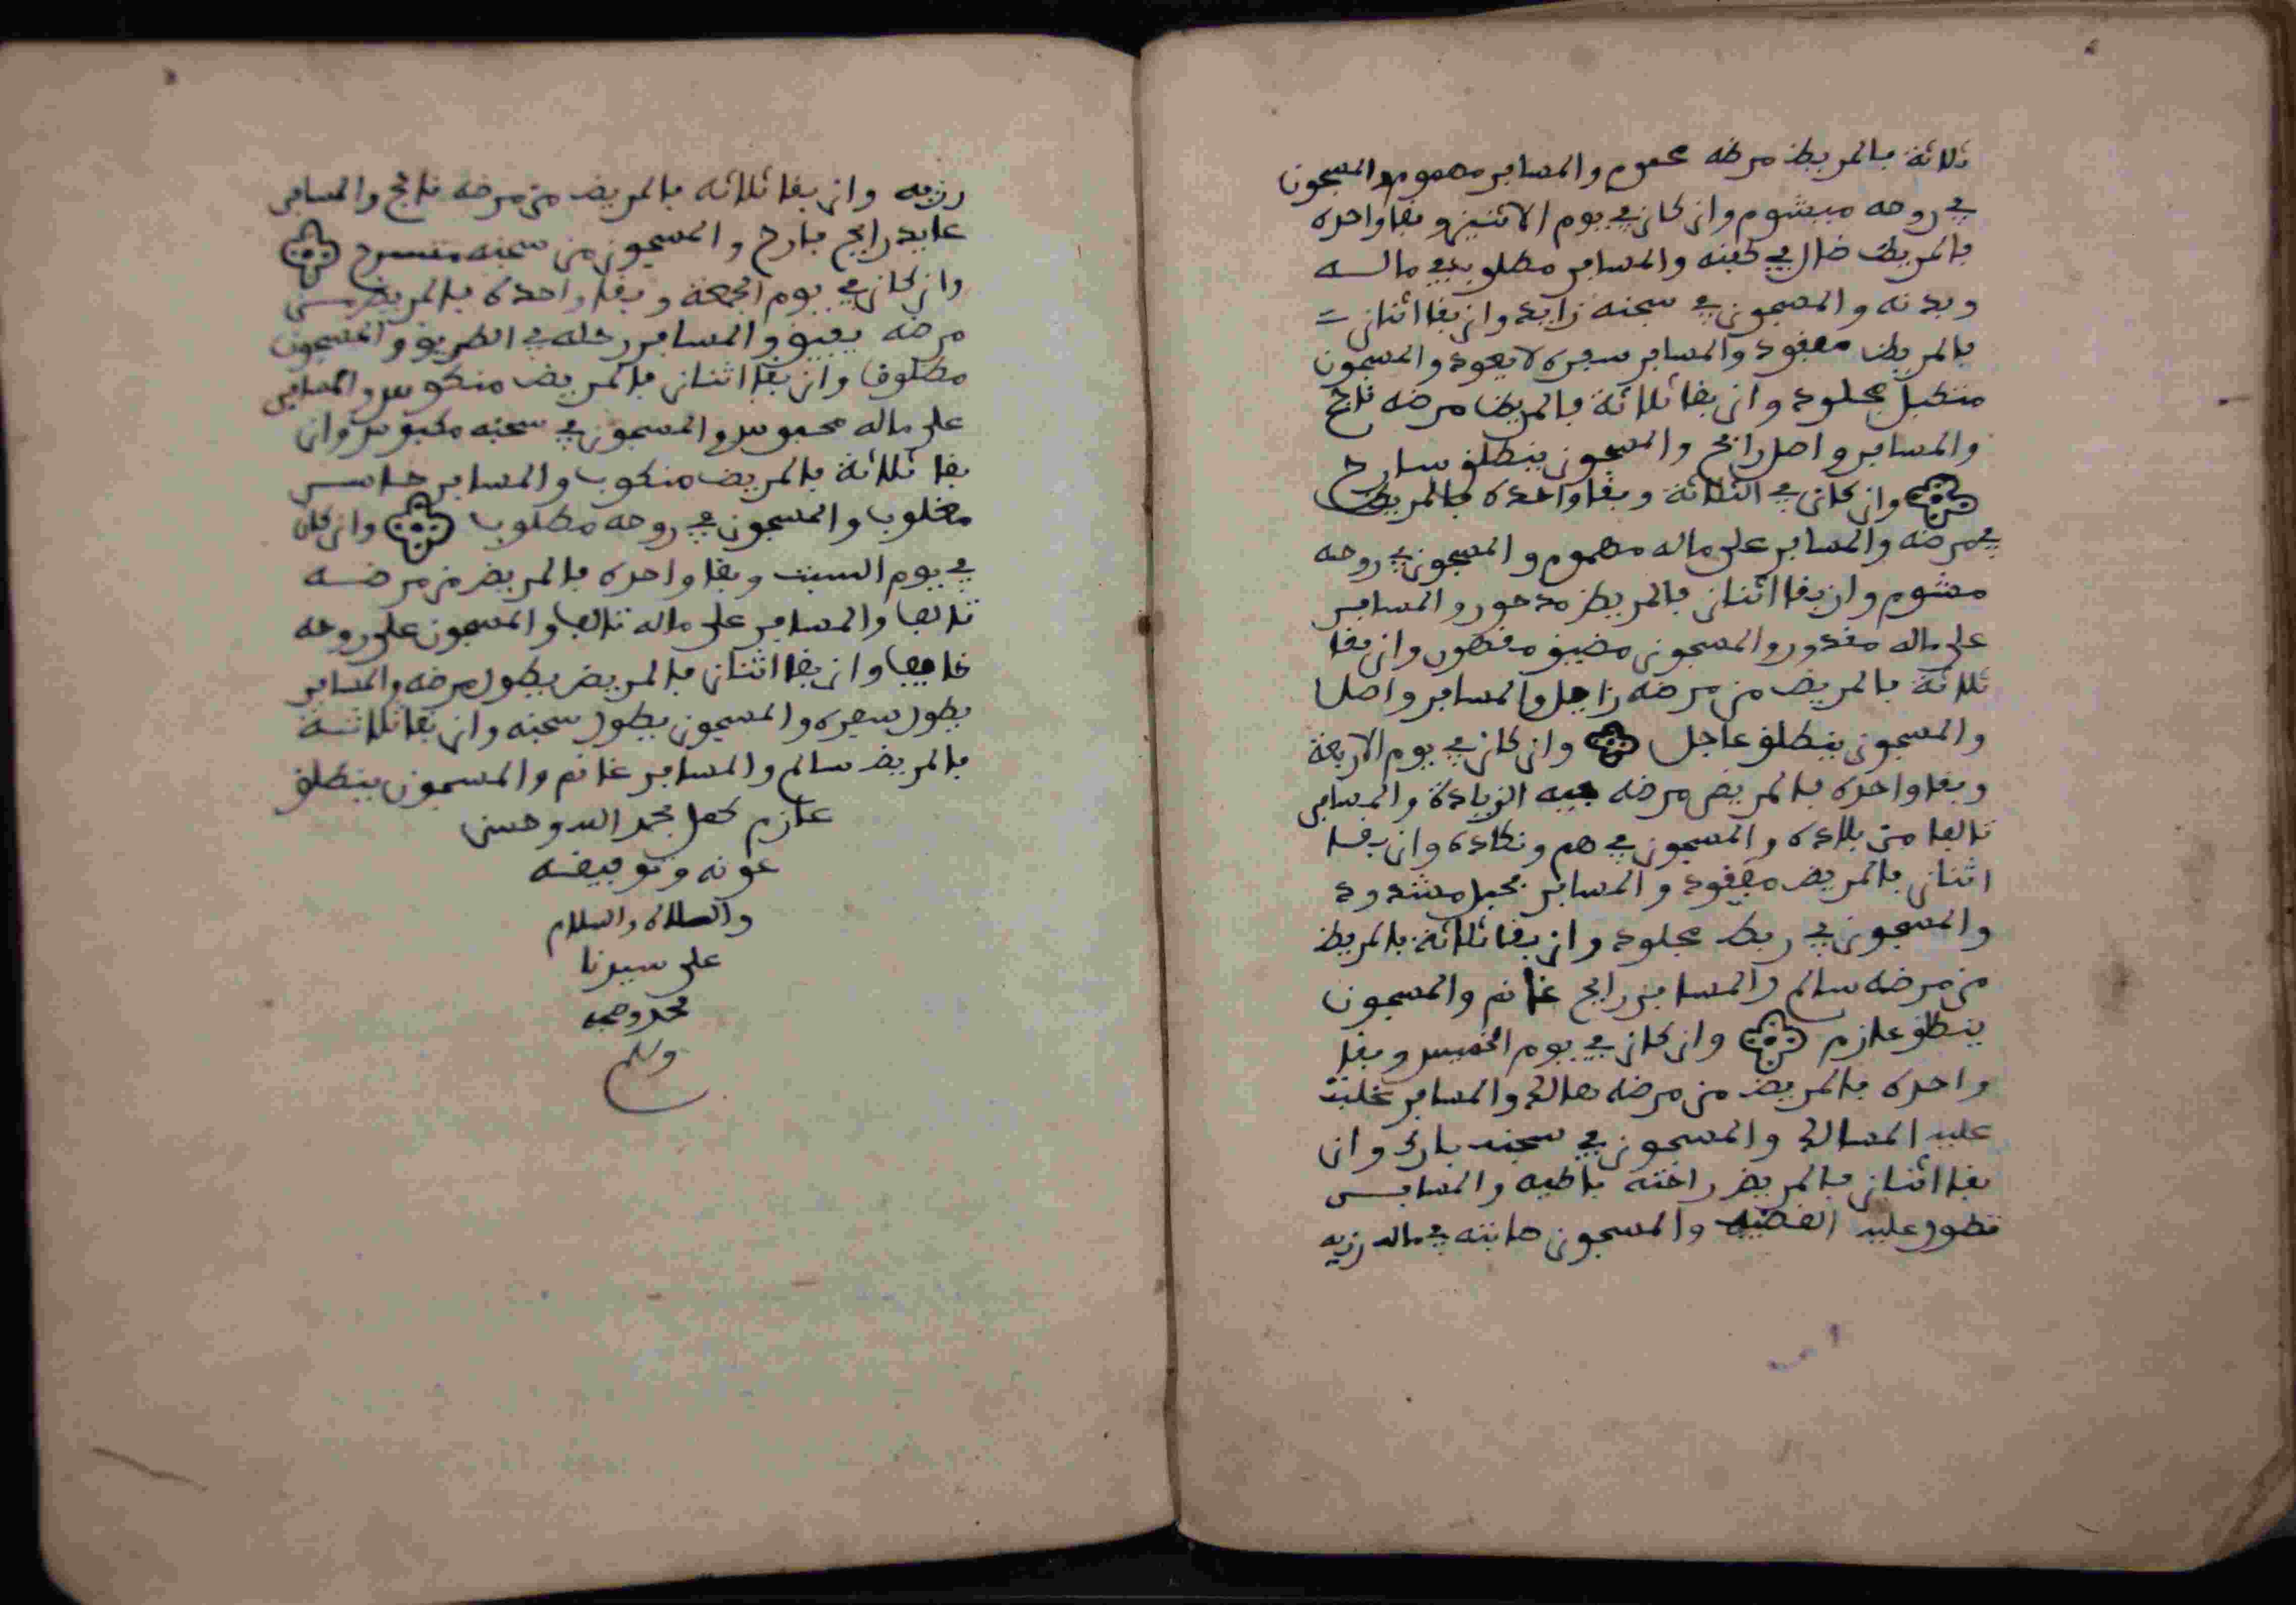 ثلاثة بالمريظ مرظه محموم والمسافر مهموم والمسجون
في روحه ميشوم وان كان في يوم الاثنين وبقا واحده
فالمريض ضال في كفنه والمسافر مطلوب في مالـــه
وبدنه والمسجون في سجنه زايد وان بقا اثنان
فالمريض مفقود والمسافر سفره لا يعود والمسجون
متكبل مجلود وان بقا ثلاثة فالمريض مرضه ناجح
والمسافر واصل رابح والمسجون ينطلق سارح
وان كان في الثلاثة وبقا واحده فالمريض
في مرضه والمسافر على ماله مهموم والمسجون في روحه
مشوم وان بقا اثنان فالمريظ مدحور والمسافر
على ماله مقدور والمسجون مضيق مقهور وان بقا
ثلاثة فالمريض من مرضه زاجل والمسافر واصلا
والمسجون ينطلق عاجل وان كان في يوم الاربعة
وبقا واحده فالمريض مرضه فيه الزيادة والمسافر
تالفا من بلاده والمسجون في هم ونكاده وان بقـا
اثنان فالمريض مفقود والمسافر بحبل مشدود
والمسجون في ربط مجلود وان بقا ثلاثة فالمريظ
من مرضه سالم والمسافر رابح غانم والمسجون
ينطلق عازم وان كان في يوم الخميس وبقا
واحده فالمريض من مرضه هالك والمسافر غلبت
عليه المسالك والمسجون في سجنه بارك وان
بقا اثنان فالمريض راحته باطيه والمسافـــر
تطول عليه القضيه والمسجون حاينه في ماله رزيه
رزيه وان بقا ثلاثه فالمريض من مرضه ناجح والمسافر
عايد رابح فارح والمسجون من سجنه متسرح
وان كان في يوم الجمعة وبقا واحده فالمريض من
مرضه يفيق والمسافر رحله في الطريق والمسجون
مطلوق وان بقا اثنان فالمريض منكوس والمسافر
على ماله محبوس والمسجون في سجنه مكبوس وان
بقا ثلاثة فالمريض منكوب والمسافر خاسـر
مغلوب والمسجون في روحه مطلوب وان كان
في يوم السبت وبقا واحده فالمريض من مرضـــه
تالفا والمسافر على ماله تالفا والمسجون على روحه
خايفا وان بقا اثنان فالمريض يطول مرضه والمسافر
يطول سفره والمسجون يطول سجنه وان بقا ثلاثـــة
فالمريض سالم والمسافر غانم والمسجون ينطلق
عازم كمل بحمد الله وحسن
عونه وتوفيقـه
والصلاة والسلام
على سيدنا
محمد وصحبه
وسلم